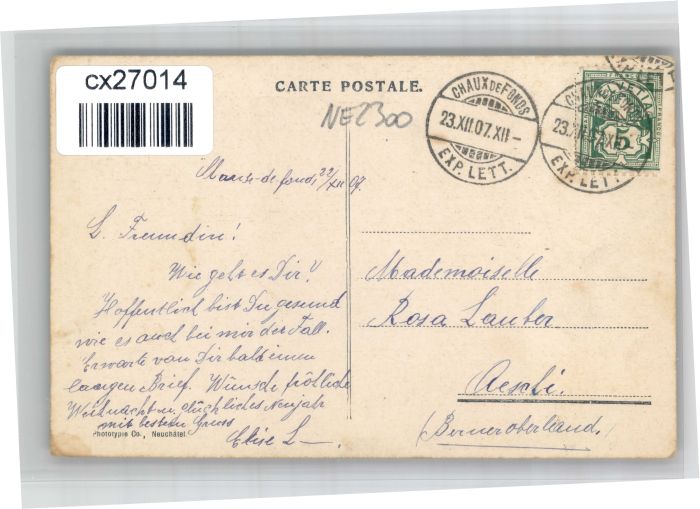 cx27014
CARTE POSTALE.
NE2300
CHAUX DE FONDS
23.XII.07.XII-
EXP. LETT.
CHAUX DE FONDS
23.XII.07.XII
EXP. LETT.
HELVETIA
FRANCO
5
de fonds, 22/XII 07.
L. Freundin!
Wie geht es Dir?
Hoffentlich bist Du gesund
wie es auch bei mir der Fall.
Erwarte von Dir bald einen
langen Brief. Wünsche fröhliche
Weihnacht u. glückliches Neujahr
mit bestem Gruss
Elise L
Mademoiselle
Rosa Lauber
Aeschi.
(Berneroberland.)
Phototypie Co., Neuchâtel